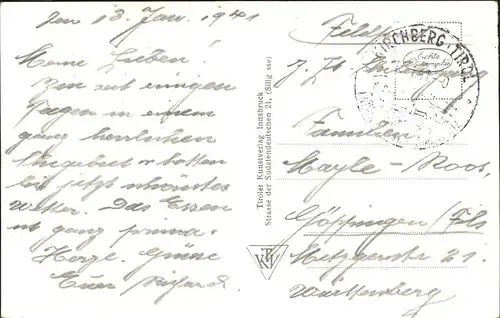 den 13. Jan. 1941
Meine Lieben!
Bin seit einigen
Tagen in einem
ganz herrlichen
Skigebiet u. hatten
bis jetzt schönstes
Wetter. Das Essen
ist ganz prima.
Herzl. Grüsse
Euer Richard
Tiroler Kunstverlag Innsbruck
Strasse der Sudetendeutschen 21, (Sillg sse)
TKV
KIRCHBERG (TIROL
Feldpost
z. Zt.
Familien
Mayle-Roos,
Göppingen/Fils
Metzgerstr 21.
Württemberg